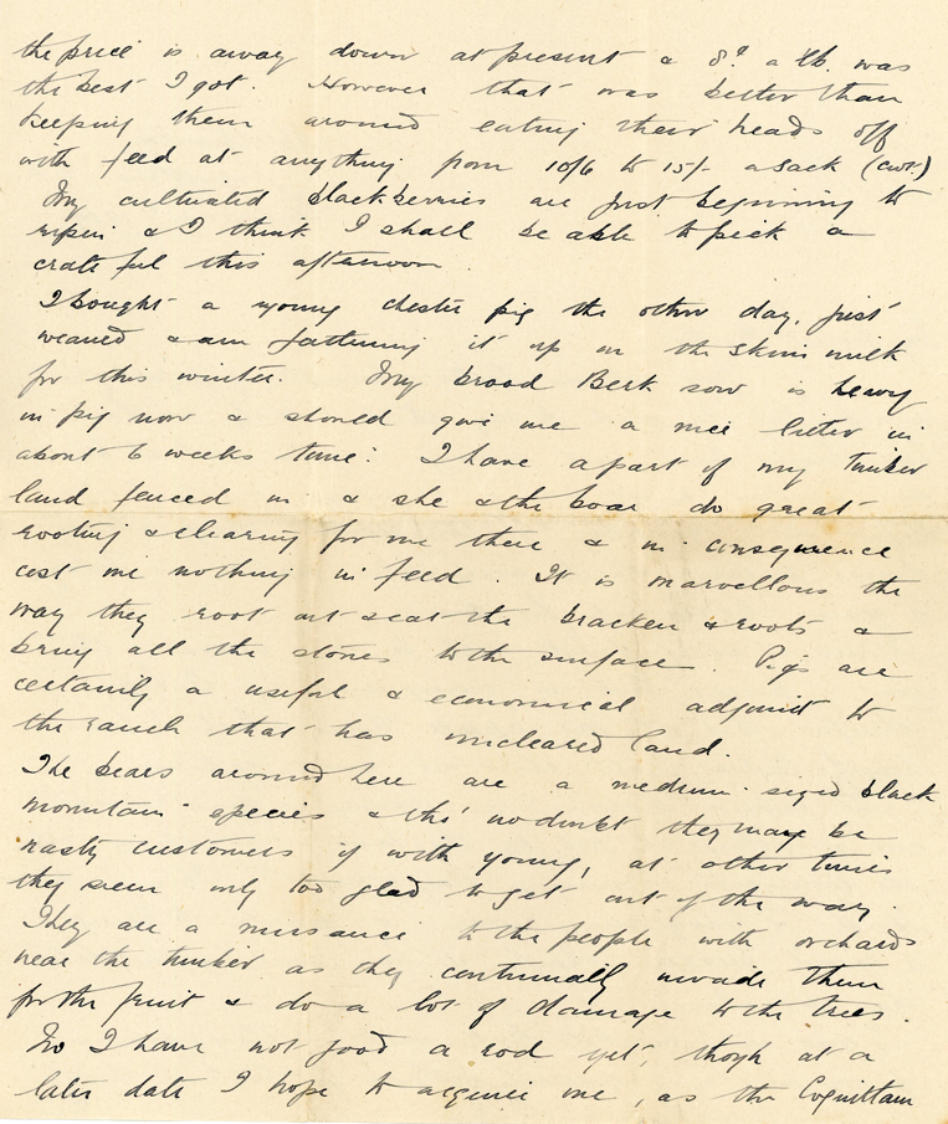 the price is away down at present & 8d. a lb. was
the best I got. However that was better than
keeping them around eating their heads off
with feed at anything from 10/6 to 15/- a sack (cwt.)
My cultivated blackberries are just beginning to
ripen & I think I shall be able to pick a
crate ful this afternoon.
I bought a young chester pig the other day, just
weaned & am fattening it up on the skim milk
for this winter. My brood Berk sow is heavy
in pig now & should give me a nice litter in
about 6 weeks time. I have a part of my timber
land fenced in & she & the boar do great
rooting & clearing for me there & in consequence
cost me nothing in feed. It is marvellous the
way they root out & eat the bracken & roots &
bring all the stones to the surface. Pigs are
certainly a useful & economical adjunct to
the ranch that has uncleared land.
The bears around here are a medium sized black
mountain species & tho' no doubt they may be
nasty customers if with young, at other times
they seem only too glad to get out of the way.
They are a nuisance to the people with orchards
near the timber as they continually invade them
for the fruit & do a lot of damage to the trees.
No I have not a rod yet, though at a
later date I hope to acquire one, as the